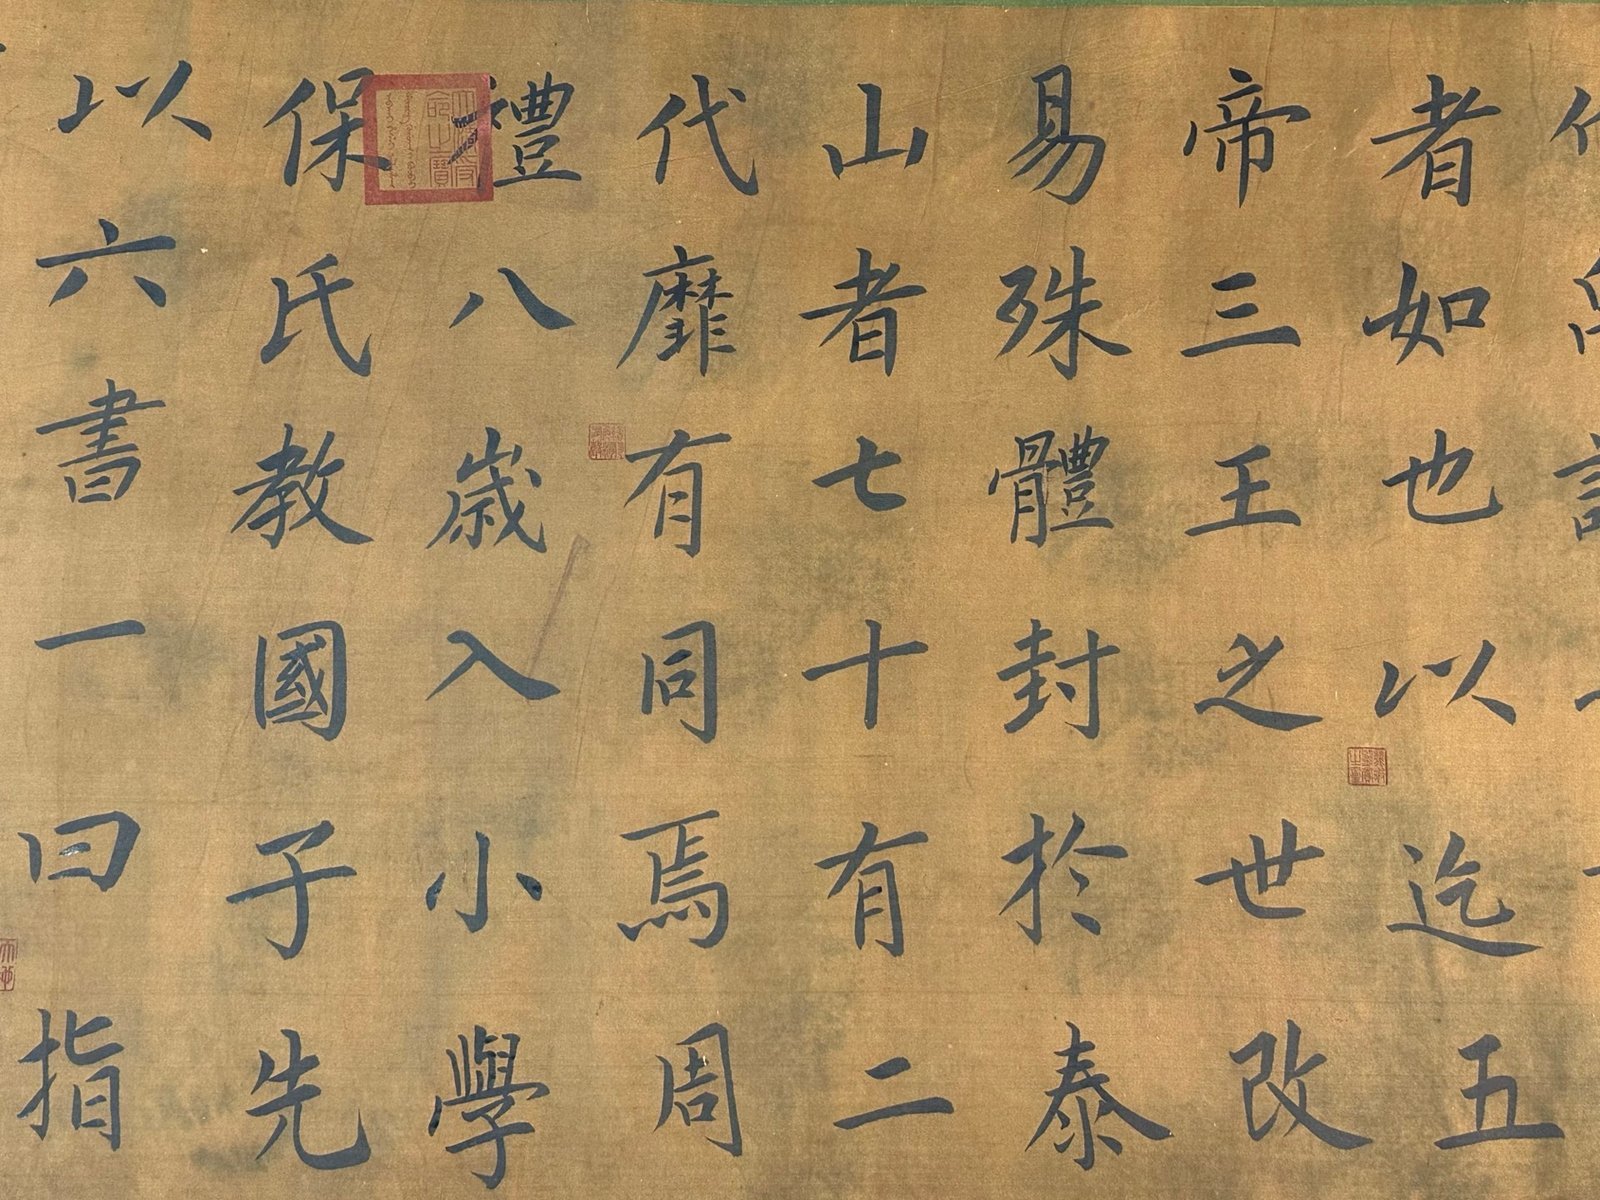 者如也以迄五
帝三王之世改
易殊體封於泰
山者七十有二
代靡有同焉周
禮八歲入小學
保氏教國子先
以六書一曰指